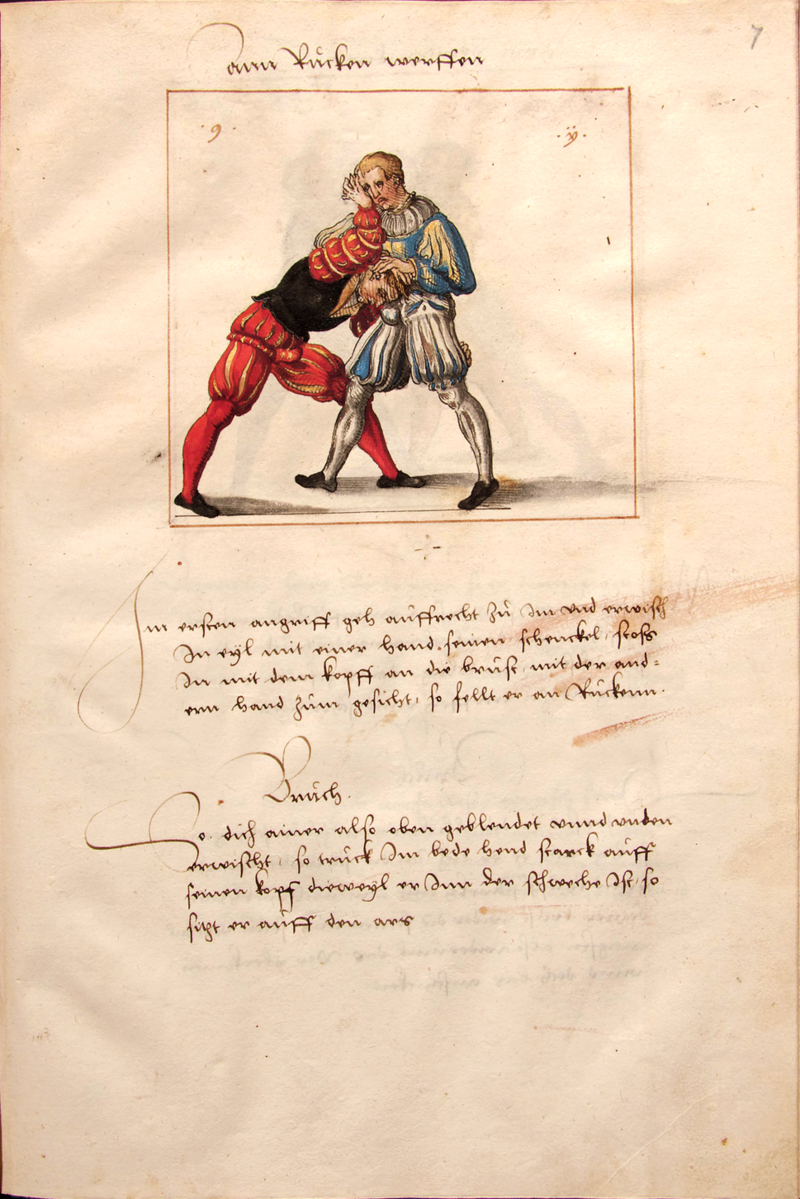 7
ann Rücken werffen
· 9 ·
· ÿ ·
Im ersten angriff geh auffrecht zu Im vnd erwisch
In eyl mit einer hand, seinen schenckel, stoss
In mit dem kopff an die brust, mit der and=
ern hand zum gesicht, so fellt er an Rückenn.
Bruch.
So dich ainer also oben geblendet vnnd vnden
erwischt, so truck Im bede hend starck auff
seinen kopf dieweyl er Inn der schweche Ist, so
sitzt er auff den ars